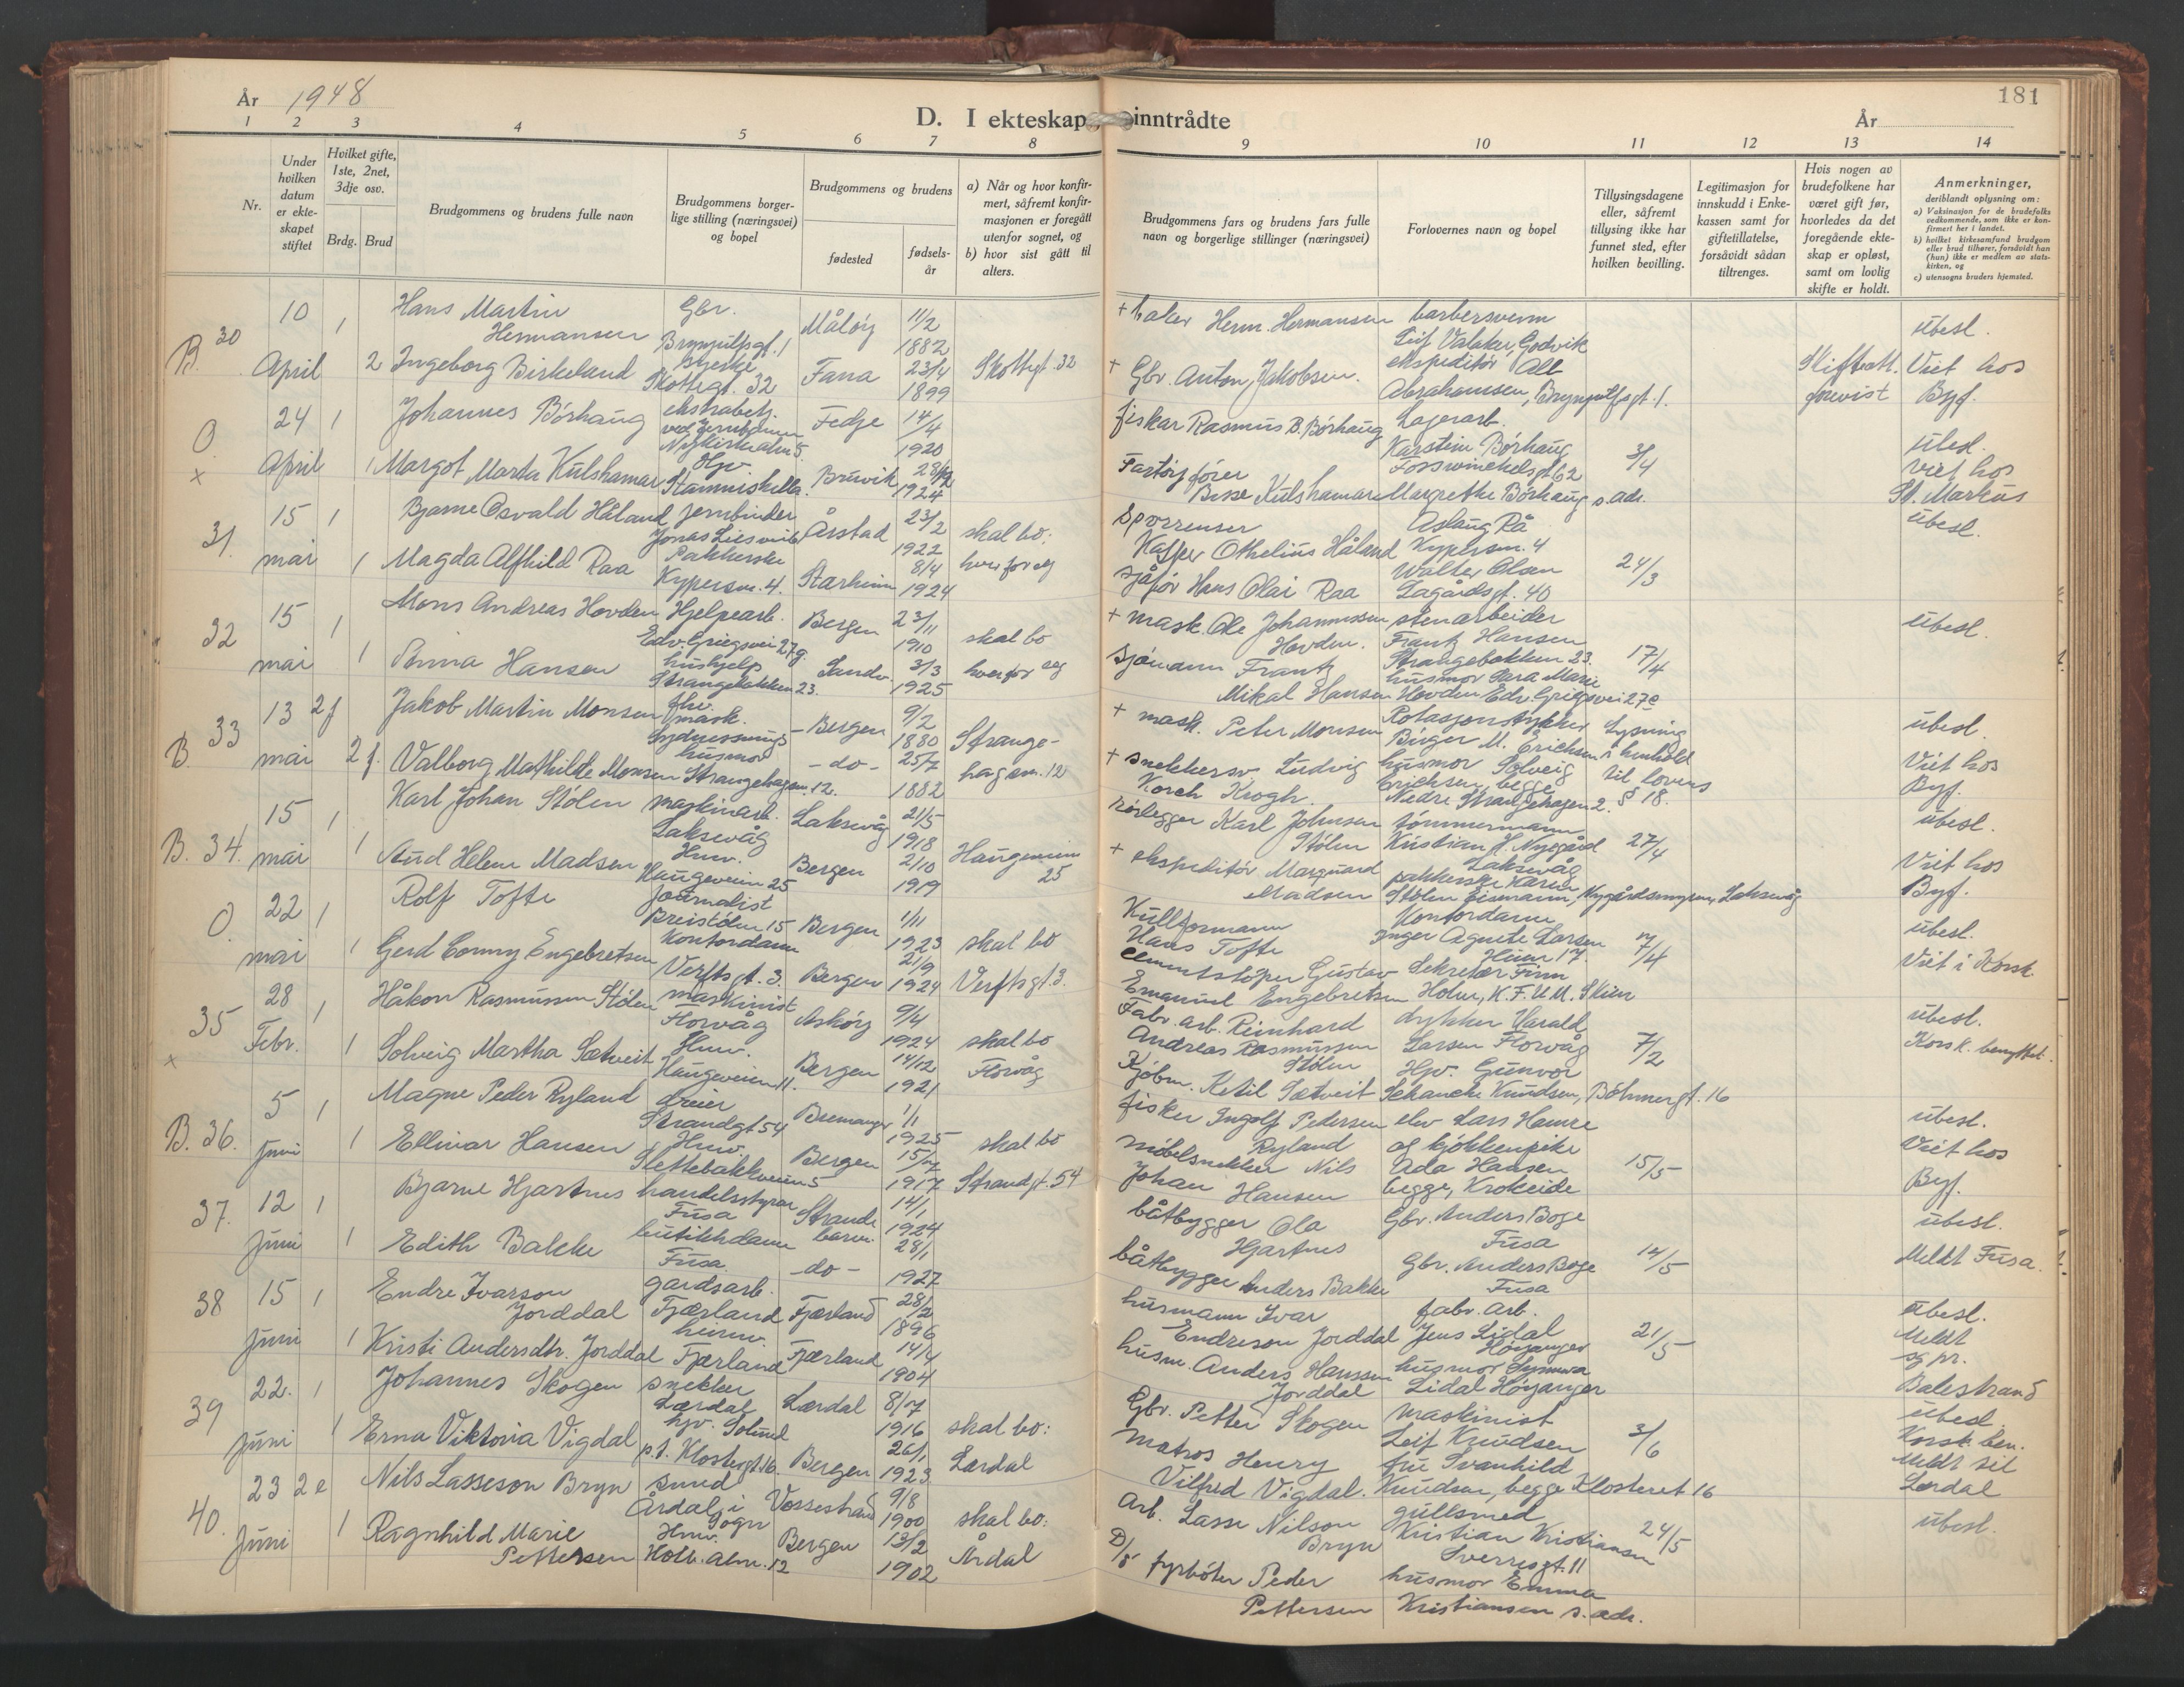 År 1948
D. I ekteskap inntrådte
År
181
1 2 3 4 5 6 7 8 9 10 11 12 13 14
Nr.
Under hvilken datum er ekteskapet stiftet
Hvilket gifte, 1ste, 2net, 3dje osv.
Brdg. Brud
Brudgommens og brudens fulle navn
Brudgommens borgerlige stilling (næringsvei) og bopel
Brudgommens og brudens
fødested
fødselsår
a) Når og hvor konfirmert, såfremt konfirmasjonen er foregått utenfor sognet, og
b) hvor sist gått til alters.
Brudgommens fars og brudens fars fulle navn og borgerlige stillinger (næringsvei)
Forlovernes navn og bopel
Tillysingsdagene eller, såfremt tillysing ikke har funnet sted, efter hvilken bevilling.
Legitimasjon for innskudd i Enkekassen samt for giftetillatelse, forsåvidt sådan tiltrenges.
Hvis nogen av brudefolkene har været gift før, hvorledes da det foregående ekteskap er opløst, samt om lovlig skifte er holdt.
Anmerkninger, deriblandt oplysning om:
a) Vaksinasjon for de brudefolks vedkommende, som ikke er konfirmert her i landet.
b) hvilket kirkesamfund brudgom eller brud tilhører, forsåvidt han (hun) ikke er medlem av statskirken, og
c) utensogns bruders hjemsted.
B. 30 10 April 1 Hans Martin Hermansen Gbr. Brynjulfsgt. 1 Måløy 11/2 1882
+ baker Herm. Hermansen barbersvenn Leif Valaker, Godvik ubesl.
2 Ingeborg Birkeland Skottegt. 32 Fana 23/4 1899 Skottegt. 32
+ Gbr. Anton Jakobsen. ekspeditør Alb. Abrahamsen, Brynjulfsgt. 1. Skifteatt. Viet hos Byf.
O. x 24 April 1 Johannes Børhaug ekstrabetj. ved Jernbanen Nykirkealm 5 Fedje 14/4 1920
fiskar Rasmus B. Børhaug Lagerarb. Karstein Børhaug Fosswinckelsgt 62 3/4 ubesl.
1 Margot Marta Kulshamar Hjv. Bruvik 28/12 1924
Fartøyfører Kulshamar Margrethe Børhaug s. adr. viet hos St. Markus
31. 15 mai 1 Bjarne Osvald Håland jernbinder Årstad 23/2 1922 skal bo:
Kasper Othelius Håland Aslaug Rå Kypersm. 4 24/3 ubesl.
1 Magda Alfhild Raa Pakkerske Kypersm. 4. Starheim 8/4 1924 hver for seg
sjåfør Hans Olai Raa Walter Olsen Lagårdsgt. 40
32 15 mai 1 Mons Andreas Hovden Hjelpearb. Edv. Griegsvei 27g. Bergen 23/11 1910 skal bo
+ mask. Ole Johannessen Hovden. stenarbeider Frantz Hansen Strangebakken 23. 17/4 ubesl.
1 Anna Hansen hushjelp Strangebakken 23. Sandv. 3/3 1925 hver for seg
sjømann Frantz Mikal Hansen husmor Sara Marie Hovden Edv. Griegsvei 27e
B 33 13 mai 2f Jakob Martin Monsen fhv. mask. Bergen 9/2 1880 Strange-
+ mask. Peter Monsen Birger M. Erichsen Lysning i henhold ubesl.
2f. Valborg Mathilde Monsen husmor Strangehagen. 12. - do - 25/7 1882 hagen. 12
+ snekkersv. Ludvig Korch Krogh. husmor Solveig Erichsen, begge Nedre Strangehagen 2. til lovens § 18. Viet hos Byf.
B. 34. 15 mai 1 Karl Johan Stølen maskinarb. Laksevåg Laksevåg 21/5 1918
rørlegger Karl Johnsen Stølen tømmermann Kristian H. Nygård Laksevåg 27/4 ubesl.
1 Aud Helene Madsen Hmv. Haugeveien 25 Bergen 2/10 1919 Haugeveien 25
+ ekspeditør Marquard Madsen pakkerske Karen Stølen Laksevåg Viet hos Byf.
O. 22 mai 1 Rolf Tofte Journalist Breistølen 15 Bergen 1/11 1923 skal bo
Kullformann Hans Tofte Kontordame Inger Agnete Larsen 7/4 ubesl.
1 Gerd Conny Engebretsen Kontordame Verftsgt. 3. Bergen 21/9 1924 Verftsgt. 3.
cementstøper Gustav Emanuel Engebretsen Sekretær Finn Holm, K.F.U.M. Skien Viet i Korsk.
35 x 28 Febr. 1 Håkon Rasmussen Stølen maskinist Florvåg Askøy 9/4 1924 skal bo
Fabr. arb. Reinhard Andreas Rasmussen Stølen dykker Harald Larsen Florvåg 7/2 ubesl.
1 Solveig Martha Sætveit Hmv. Haugeveien 11. Bergen 14/12 1921 Florvåg
Kjøbm. Ketil Sætveit Hjv. Gunvor Schancke Knudsen, Bøhmergt. 16 Korsk. benyttet.
B. 36. 5 juni 1 Magne Peder Ryland Strandgt 54 Bremanger 1/1 1925 skal bo
fisker Ingolf Pedersen Ryland elev Lars Hamre 15/5 ubesl.
1 Ellinor Hansen Hmv. Slettebakkveien 5 Bergen 15/7 1917 Strandgt. 54
møbelsnekker Nils Johan Hansen og kjøkkenpike Ada Hansen begge, Krokeide Viet hos Byf.
37. 12 juni 1 Bjarne Hjartnes handelsstyrar Fusa Strandebarm 14/1 1924
båtbygger Ola Hjartnes Gbr. Anders Boge Fusa 14/5 ubesl.
1 Edith Bakke butikkdame Fusa - do - 28/1 1927
båtbygger Anders Bakke Gbr. Anders Boge Fusa Meldt Fusa.
38 15 juni 1 Endre Ivarson Jorddal gardsarb. Fjærland Fjærland 28/2 1896
husmann Ivar Endreson Jorddal fabr. arb. Jens Lidal Høyanger 21/5 ubesl.
1 Kristi Andersdtr. Jorddal heimv. Fjærland Fjærland 14/4 1904
husm. Anders Hansson Jorddal husmor Synnva Lidal Høyanger Meldt sg pr. Balestrand
39 22. juni 1 Johannes Skogen snekker Lærdal Lærdal 8/7 1916 skal bo:
Gbr. Petter Skogen Maskinist Leif Knudsen 3/6 ubesl.
1 Erna Viktoria Vigdal hjv. Solund p.t. Klostergt. 16. Bergen 26/1 1923 Lærdal
matros Henry Vilfred Vigdal. fru Svanhild Knudsen, begge Klosteret 16 Korsk. ben. Meldt til Lærdal
40. 23 juni 2e Nils Lasseson Bryn smed Årdal i Sogn Vossestrand 9/8 1900 skal bo:
Arb. Lasse Nilson Bryn gullsmed Kristian Kristiansen Sverresgt. 11 24/5 ubesl.
1 Ragnhild Marie Pettersen Hmv. Holb. alm. 12 Bergen 13/2 1902 Årdal
fyrbøter Peder Pettersen husmor Emma Kristiansen s. adr.